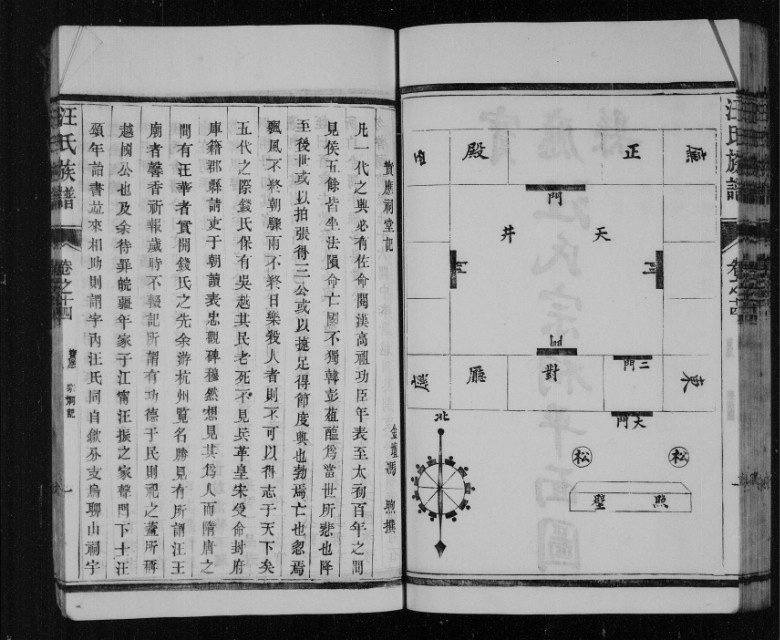 汪氏族譜
卷之十四
正殿
天井
門
對廳
二門
大門
東
北
松
松
照壁
寶應祠堂記
金壇馮煦撰
凡一代之興必有佐命閱漢高祖功臣年表至太初百年之間
見侯五餘皆坐法隕命亡國不獨韓彭葅醢為當世所悲也降
至後世或以拍張得三公或以捷足得節度興也勃焉亡也忽焉
飄風不終朝驟雨不終日樂殺人者則不可以得志于天下矣
五代之際錢氏保有吳越其民老死不見兵革皇宋受命封府
庫籍郡縣請吏于朝讀表忠觀碑穆然想見其為人而隋唐之
間有汪華者實開錢氏之先余游杭州覽名勝見有所謂汪王
廟者馨香祈報歲時不輟記所謂有功德于民則祀之蓋所稱
越國公也及余待罪皖疆年家子江甯汪振之家聲門下士汪
頌年詒書並來相助則謂宇內汪氏同自歙分支烏聊山祠宇
汪氏族譜
卷之十四
寶應
宗祠記
一